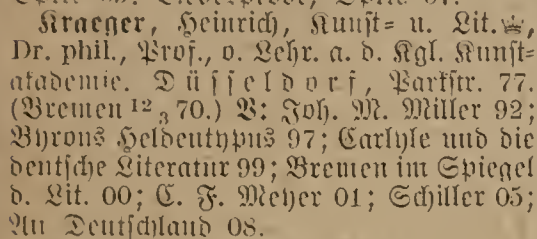 Kraeger, Heinrich, Kunst= u. Lit.
Dr. phil., Prof., o. Lehr. a. d. Kgl. Kunst=
akademie. Düsseldorf, Parkstr. 77.
(Bremen 12/3 70.) V: Joh. M. Miller 92;
Byrons Heldentypus 97; Carlyle und die
deutsche Literatur 99; Bremen im Spiegel
d. Lit. 00; C. F. Meyer 01; Schiller 05;
An Deutschland 08.